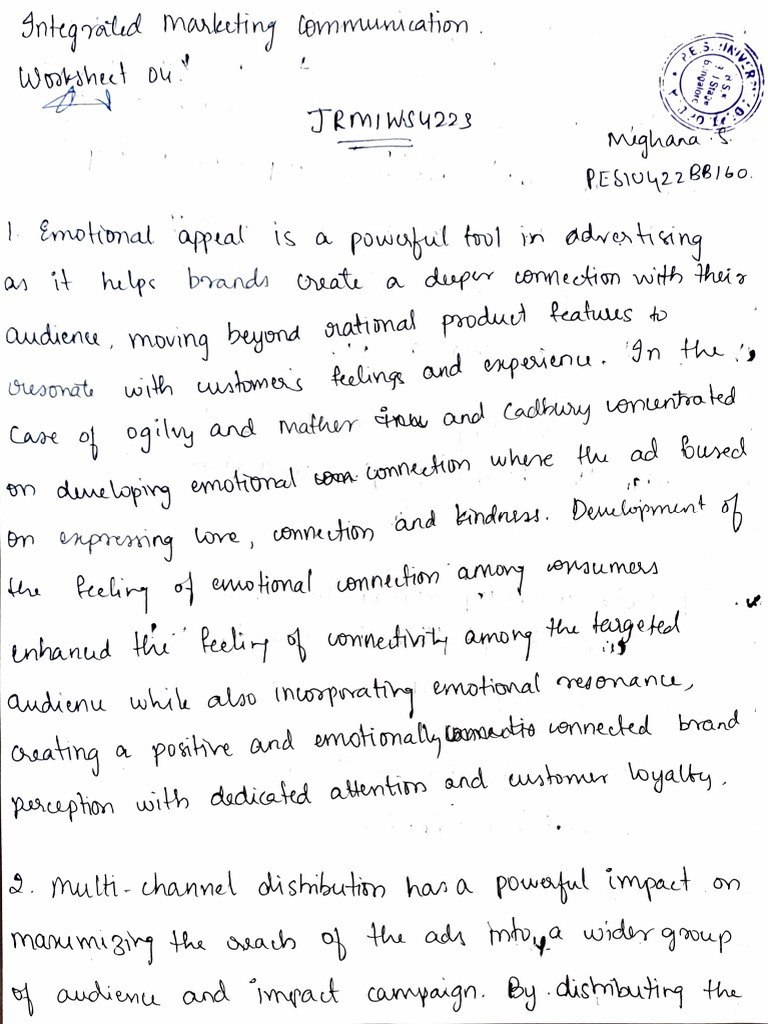 Integrated Marketing Communication.
Worksheet 04.
P.E.S. UNIVER
JRM1WS4223
Meghana S.
PES1U422BB160.
1. Emotional appeal is a powerful tool in advertising
as it helps brands create a deeper connection with their
audience, moving beyond rational product features to
resonate with customer's feelings and experience. In the
case of Ogilvy and Mather and Cadbury concentrated
on developing emotional connection where the ad fused
on expressing love, connection and kindness. Development of
the feeling of emotional connection among consumers
enhanced the feeling of connectivity among the targeted
audience while also incorporating emotional resonance,
creating a positive and emotionally connected brand
perception with dedicated attention and customer loyalty.
2. Multi-channel distribution has a powerful impact on
maxumizing the reach of the ads into a wider group
of audience and impact campaign. By distributing the